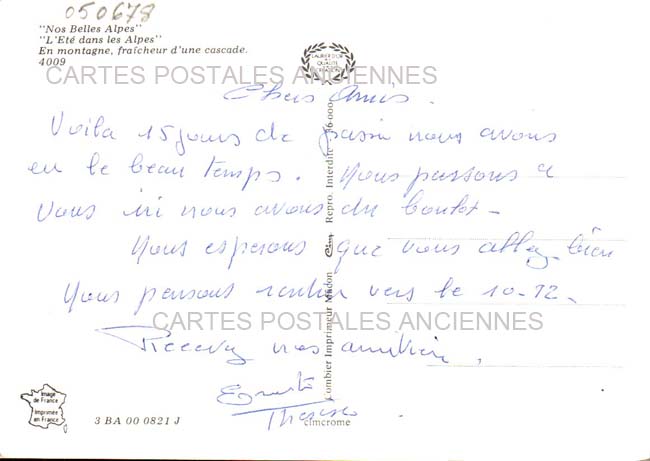 050678
"Nos Belles Alpes"
"L'Eté dans les Alpes"
En montagne, fraîcheur d'une cascade.
4009
LAURIER D'OR
DE LA
QUALITÉ
CARTES POSTALES ANCIENNES
Chers Amis.
Voila 15 jours de passer nous avons
eu le beau temps. Nous pensons a
Vous ici nous avons du boulot -
Nous esperons que vous allez bien
Nous pensons rentrer vers le 10-12-
CARTES POSTALES ANCIENNES
Recevez nos amitiés,
Thérèse
Combier Imprimeur Macon Cim Repro. Interdite
cimcrome
Image
de France
Imprimée
en France
3 BA 00 0821 J